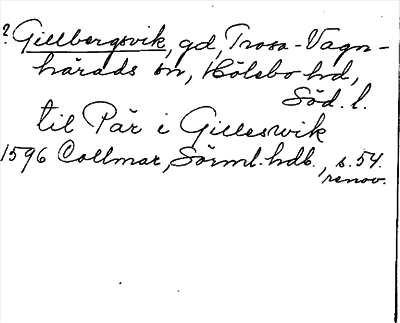 ? Gillbergsvik, gd, Trosa-Vagn-
härads sn, Hölebo hd,
Söd. l.
til Pär i Gilleswik
1596 Collmar, Sörml. hdb., s. 54.
renov.